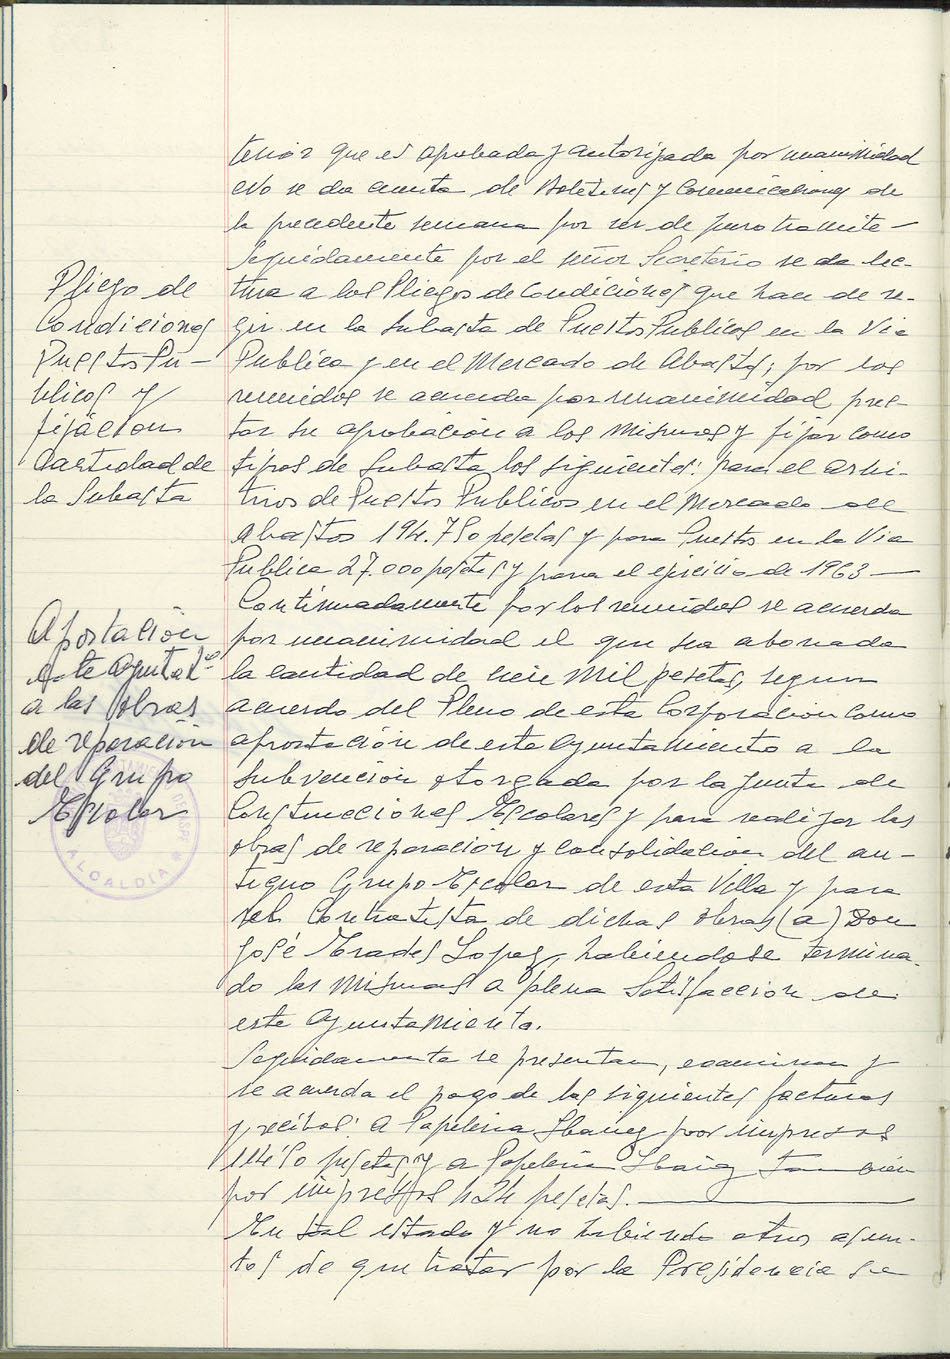 terior que es aprobada y autorizada por unanimidad
No se da cuenta de Boletines y Comunicaciones de
la precedente semana por ser de puro tramite —
Seguidamente por el señor Secretario se da lec-
tura a los Pliegos de Condiciones que han de re-
gir en la Subasta de Puestos Publicos en la Via
Publica y en el Mercado de Abastos; por los
reunidos se acuerda por unanimidad pres-
tar su aprobación a los mismos y fijar como
tipos de Subasta los siguientes: para el arbi-
trios de Puestos Publicos en el Mercado de
abastos 194.750 pesetas y para Puestos en la Via
Publica 27.000 pesetas y para el ejercicio de 1963 —
Continuadamente por los reunidos se acuerda
por unanimidad el que sea abonada
la cantidad de mil pesetas, segun
acuerdo del Pleno de esta Corporacion como
aportación de este Ayuntamiento a la
Subvención otorgada por la Junta de
Construcciones Escolares y para realizar las
obras de reparación y consolidacion del an-
tiguo Grupo Escolar de esta Villa y para
el Contratista de dichas obras (a) Don
José Erades Lopez, habiendose termina-
do las mismas a plena Satisfacción de
este Ayuntamiento.
Seguidamente se presentan, examinan y
se acuerda el pago de las siguientes facturas
y recibos: a Papeleria Ibañez por impresos
pesetas y a Papeleria Ibañez tambien
por impresos 124 pesetas.
En tal estado y no habiendo otros asun-
tos de que tratar por la Presidencia se
Pliego de
Condiciones
Puestos Pu-
blicos y
fijación
Cantidad de
la Subasta
Aportación
este Ayuntatº
a las obras
de reparación
del Grupo
Escolar
AYUNTAMIENTO DE ASPE
ALCALDIA